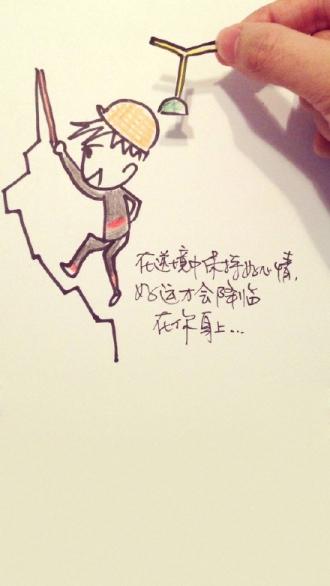 在逆境中保持好心情，
好运才会降临
在你身上...